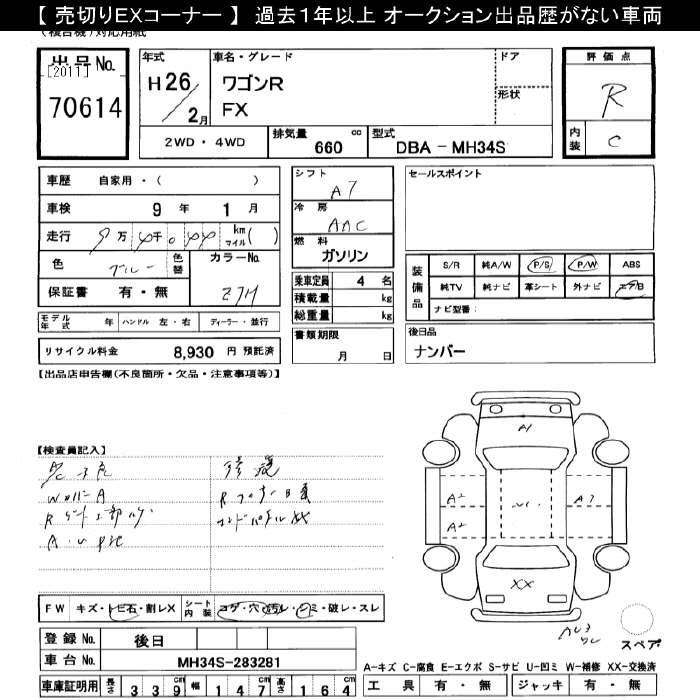 【 売切りEXコーナー 】 過去１年以上 オークション出品歴がない車両
出品No.
[2011]
70614
年式
H26/2月
車名・グレード
ワゴンR
FX
ドア
形状
評価点
R
内装
C
2WD・4WD
排気量 cc
660
型式
DBA - MH34S
車歴 自家用・( )
車検 9年 1月
走行 万 千 km マイル( )
色 ブルー 色替 カラーNo.
Z7H
保証書 有・無
モデル年式 年 ハンドル 左・右 ディーラー・並行
リサイクル料金 8,930 円 預託済
シフト
AT
冷房
AAC
燃料
ガソリン
乗車定員 4 名
積載量 kg
総重量 kg
書類期限
月 日
セールスポイント
装備品
S/R 純A/W P/S P/W ABS
純TV 純ナビ 革シート 外ナビ エアB
ナビ型番:
後日品
ナンバー
【出品店申告欄(不良箇所・欠品・注意事項等)】
【検査員記入】
修復
A1
A2
A2
XX
スペア
FW キズ・トビ石・割レX シート内装 コゲ・穴・汚レ・シミ・破レ・スレ
登録No. 後日
車台No. MH34S-283281
車庫証明用 長さ 339 cm 幅 147 cm 高さ 164 cm
A-キズ C-腐食 E-エクボ S-サビ U-凹ミ W-補修 XX-交換済
工具 有・無 ジャッキ 有・無